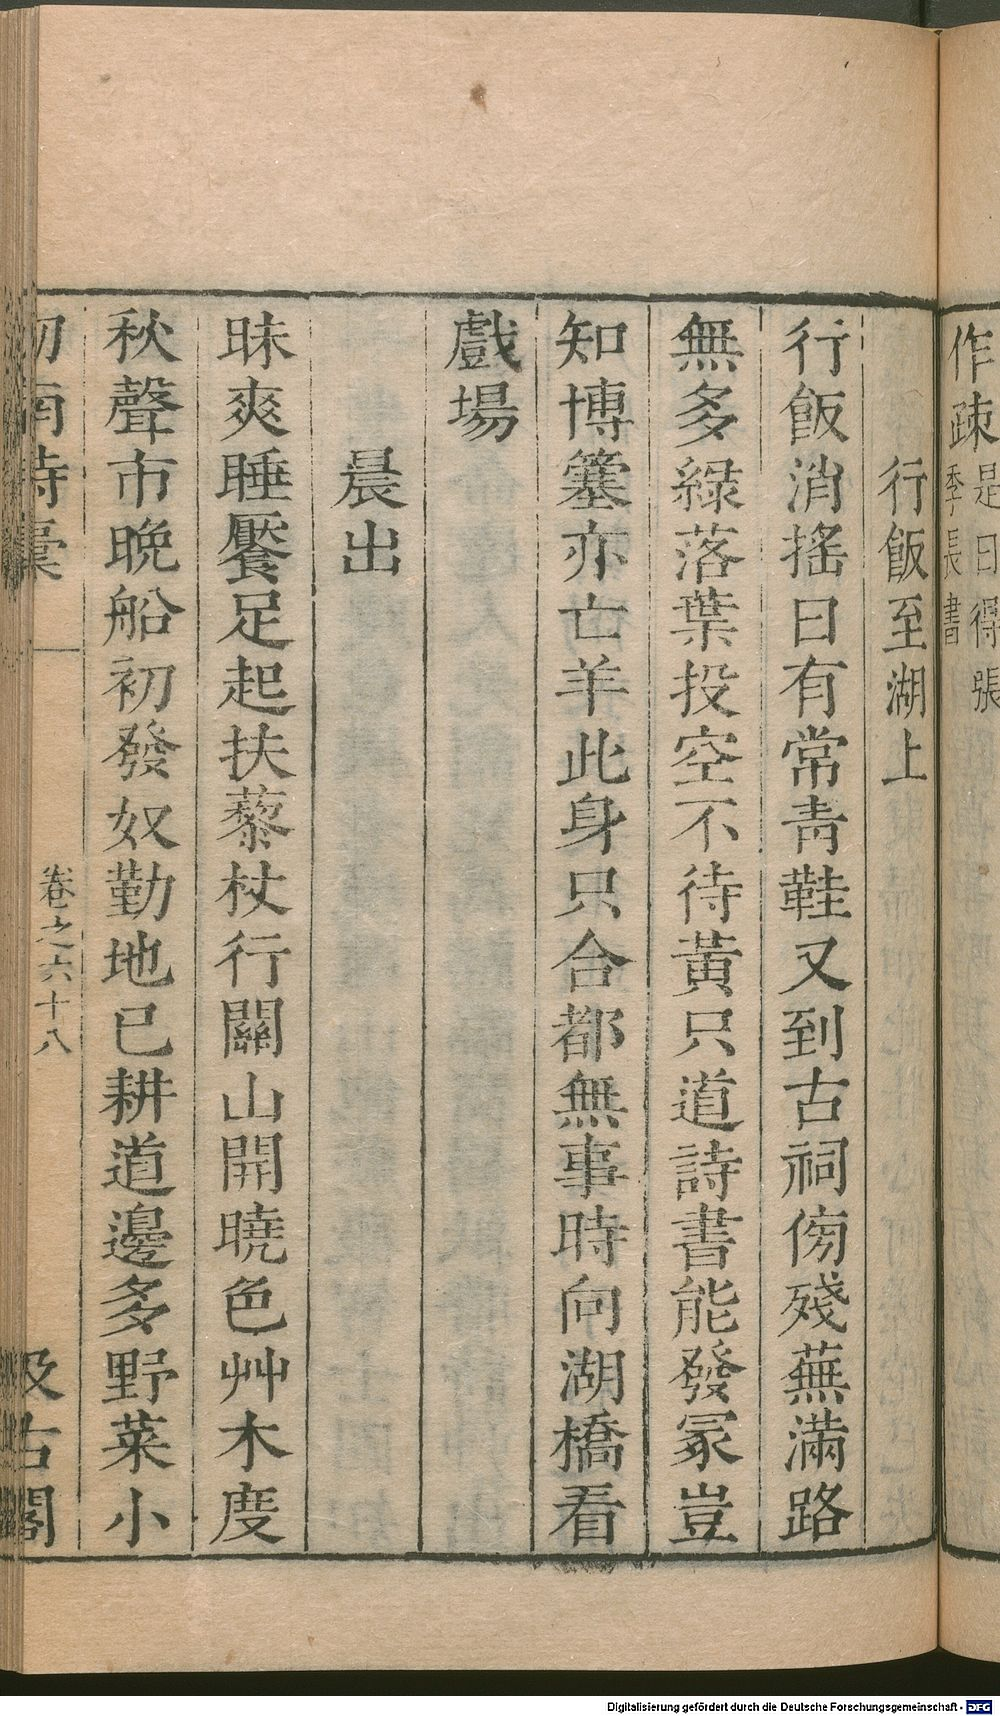 作疎是日得張
季長書
行飯至湖上
行飯消搖日有常青鞋又到古祠傍殘蕪滿路
無多綠落葉投空不待黃只道詩書能發冢豈
知博簺亦亡羊此身只合都無事時向湖橋看
戲場
晨出
昧爽睡饜足起扶藜杖行關山開曉色艸木度
秋聲市晚船初發奴勤地已耕道邊多野菜小
卷之六十八
汲古閣
Digitalisierung gefördert durch die Deutsche Forschungsgemeinschaft - DFG